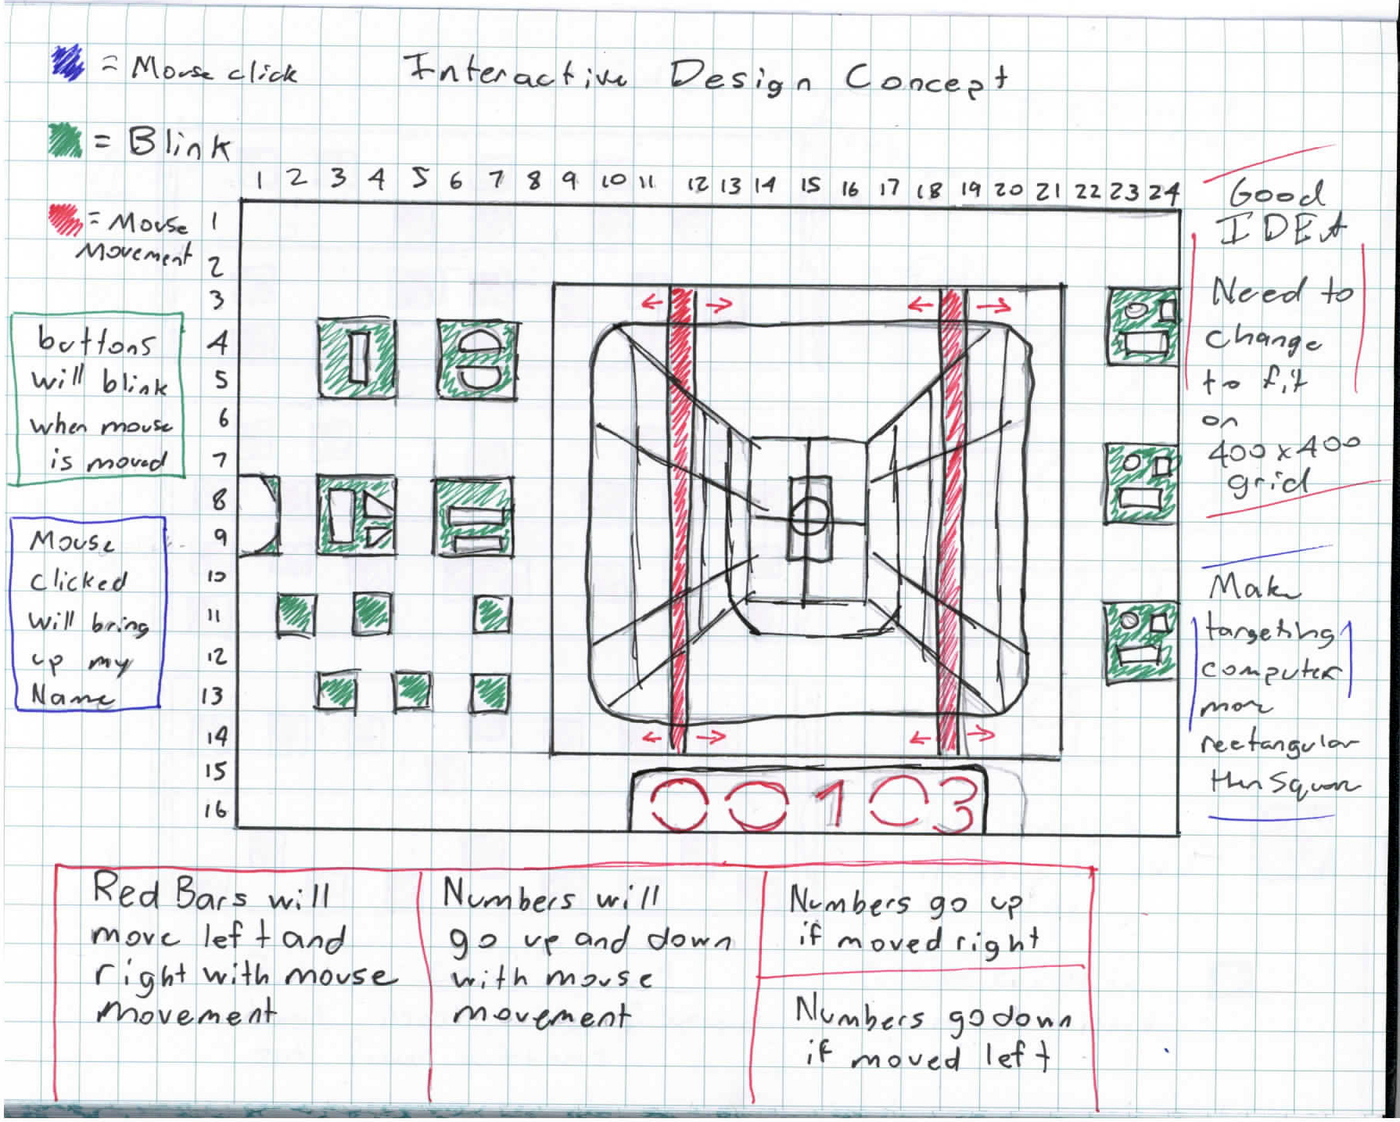 = Mouse click
Interactive Design Concept
= Blink
1 2 3 4 5 6 7 8 9 10 11 12 13 14 15 16 17 18 19 20 21 22 23 24
= Mouse
Movement
1
2
3
4
5
6
7
8
9
10
11
12
13
14
15
16
buttons
will blink
when mouse
is moved
Mouse
clicked
will bring
up my
Name
Good
IDEA
Need to
change
to fit
on
400x400
grid
Make
targeting
computer
more
rectangular
then Square
00103
Red Bars will
move left and
right with mouse
movement
Numbers will
go up and down
with mouse
movement
Numbers go up
if moved right
Numbers go down
if moved left